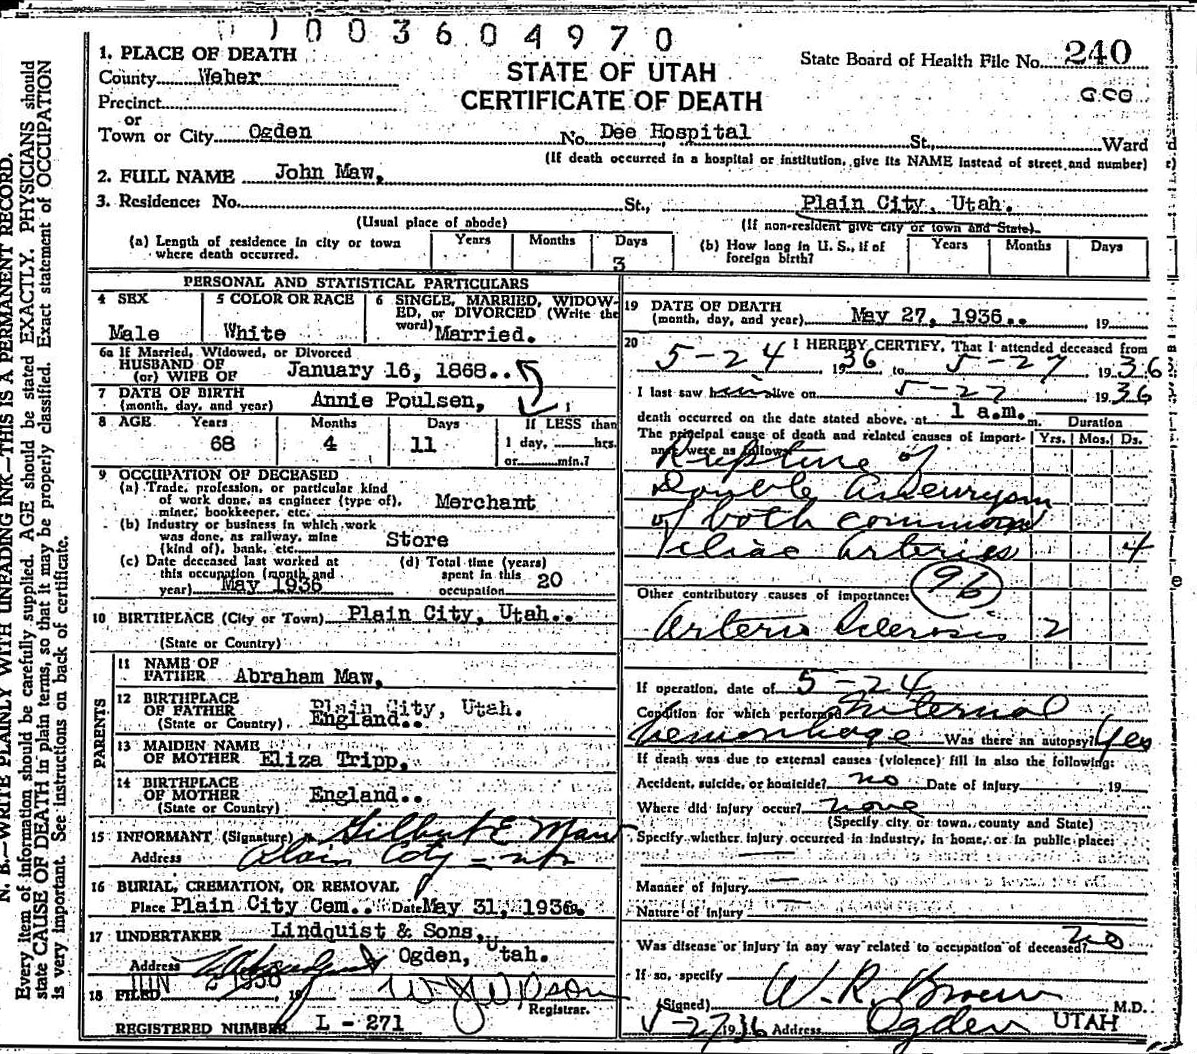 1003604970
1. PLACE OF DEATH
County Weber
STATE OF UTAH
State Board of Health File No. 240
Precinct
CERTIFICATE OF DEATH
GCO
or
Town or City Ogden No. Dee Hospital St., Ward
(If death occurred in a hospital or institution, give its NAME instead of street and number)
2. FULL NAME John Maw,
3. Residence: No. St., Plain City, Utah.
(Usual place of abode) (If non-resident give city or town and State)
(a) Length of residence in city or town where death occurred. Years Months Days 3 (b) How long in U. S., if of foreign birth? Years Months Days
PERSONAL AND STATISTICAL PARTICULARS
4 SEX Male
5 COLOR OR RACE White
6 SINGLE, MARRIED, WIDOWED, or DIVORCED (Write the word) Married.
6a If Married, Widowed, or Divorced
HUSBAND OF
(or) WIFE OF January 16, 1868..
7 DATE OF BIRTH
(month, day, and year) Annie Poulsen,
8 AGE Years 68 Months 4 Days 11 If LESS than
1 day, hrs.
or min.?
9 OCCUPATION OF DECEASED
(a) Trade, profession, or particular kind
of work done, as engineer (type of),
miner, bookkeeper, etc. Merchant
(b) Industry or business in which work
was done, as railway, mine
(kind of), bank, etc. Store
(c) Date deceased last worked at
this occupation (month and
year) May 1936
(d) Total time (years)
spent in this
occupation 20
10 BIRTHPLACE (City or Town) Plain City, Utah..
(State or Country)
PARENTS
11 NAME OF
FATHER Abraham Maw,
12 BIRTHPLACE
OF FATHER Plain City, Utah.
(State or Country) England..
13 MAIDEN NAME
OF MOTHER Eliza Tripp,
14 BIRTHPLACE
OF MOTHER England..
(State or Country)
15 INFORMANT (Signature) Gilbert E Maw
Address Plain City
16 BURIAL, CREMATION, OR REMOVAL
Place Plain City Cem.. Date May 31, 1936.
17 UNDERTAKER Lindquist & Sons,
Address Ogden, Utah.
JUN 2 1936
18 FILED 19
Registrar.
REGISTERED NUMBER L - 271
19 DATE OF DEATH
(month, day, and year) May 27, 1936.. 19
20 I HEREBY CERTIFY, That I attended deceased from
5-24 1936 to 5-27 1936
I last saw him alive on 5-27 1936
death occurred on the date stated above, at 1 a.m. m.
Duration
The principal cause of death and related causes of importance were as follows: Yrs. Mos. Ds.
Rupture of
Double Aneurysm
of both common
iliac arteries 4
96
Other contributory causes of importance:
Arterio Sclerosis 2
If operation, date of 5-24
Condition for which performed Internal
hemorrhage Was there an autopsy? Yes
If death was due to external causes (violence) fill in also the following:
Accident, suicide, or homicide? no Date of Injury 19
Where did injury occur? none
(Specify city or town, county and State)
Specify whether injury occurred in industry, in home, or in public place:
Manner of Injury
Nature of Injury
Was disease or injury in any way related to occupation of deceased? no
If so, specify
(Signed) W. R. Brown M.D.
5-27 1936 Address Ogden UTAH
N. B.—WRITE PLAINLY WITH UNFADING INK—THIS IS A PERMANENT RECORD.
Every item of information should be carefully supplied. AGE should be stated EXACTLY. PHYSICIANS should
state CAUSE OF DEATH in plain terms, so that it may be properly classified. Exact statement of OCCUPATION
is very important. See instructions on back of certificate.